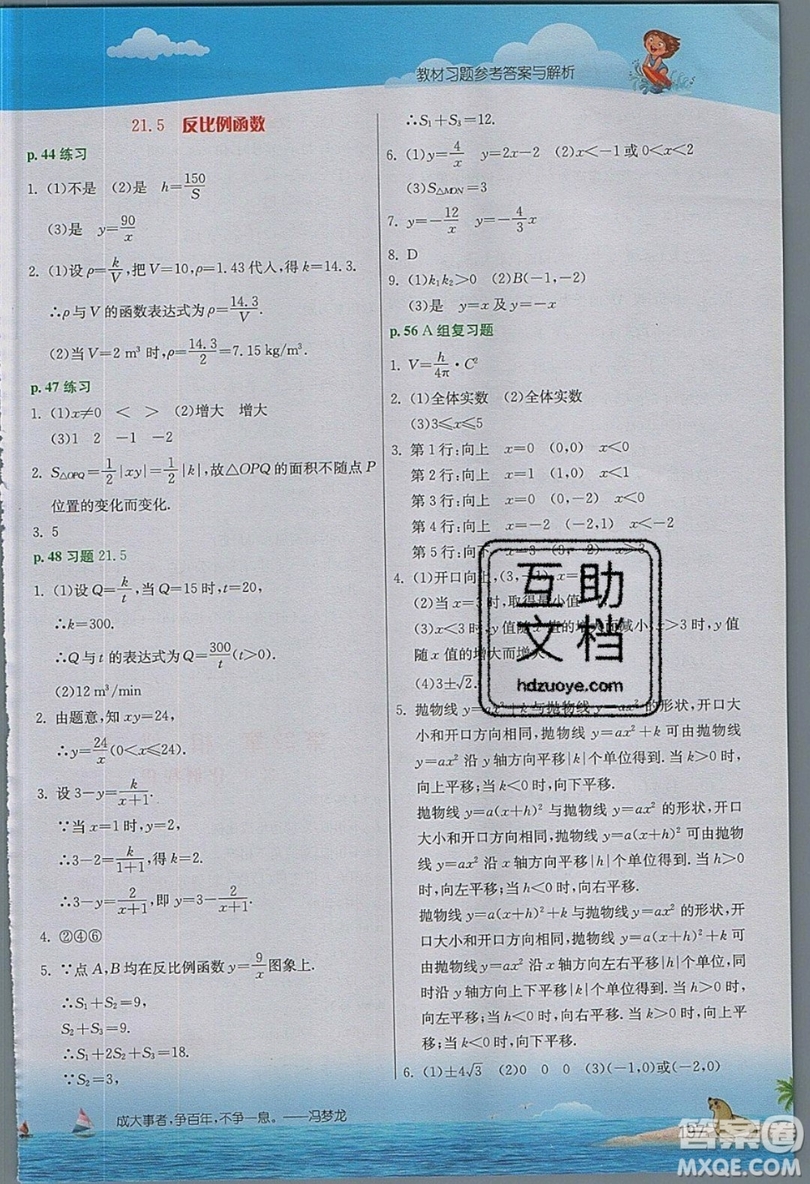 教材习题参考答案与解析
21.5 反比例函数
p.44 练习
1. (1)不是 (2)是 h=150/S
(3)是 y=90/x
2. (1)设 ρ=k/V,把 V=10,ρ=1.43 代入,得 k=14.3.
∴ρ 与 V 的函数表达式为 ρ=14.3/V.
(2)当 V=2 m³ 时,ρ=14.3/2=7.15 kg/m³.
p.47 练习
1. (1)x≠0 < > (2)增大 增大
(3)1 2 -1 -2
2. S△OPQ=1/2|xy|=1/2|k|,故△OPQ 的面积不随点 P
位置的变化而变化.
3. 5
p.48 习题 21.5
1. (1)设 Q=k/t,当 Q=15 时,t=20,
∴k=300.
∴Q 与 t 的表达式为 Q=300/t(t>0).
(2)12 m³/min
2. 由题意,知 xy=24,
∴y=24/x(0<x≤24).
3. 设 3-y=k/(x+1).
∵当 x=1 时,y=2,
∴3-2=k/(1+1),得 k=2.
∴3-y=2/(x+1),即 y=3-2/(x+1).
4. ②④⑥
5. ∵点 A,B 均在反比例函数 y=9/x 图象上.
∴S₁+S₂=9.
S₂+S₃=9.
∴S₁+S₂+S₂+S₃=18.
∵S₂=3,
∴S₁+S₃=12.
6. (1)y=4/x y=2x-2 (2)x<-1 或 0<x<2
(3)S△MON=3
7. y=-12/x y=-4/3x
8. D
9. (1)k₁k₂>0 (2)B(-1,-2)
(3)是 y=x 及 y=-x
p.56 A 组复习题
1. V=h/4π·C²
2. (1)全体实数 (2)全体实数
(3)3≤x≤5
3. 第 1 行:向上 x=0 (0,0) x<0
第 2 行:向上 x=0 (0,1) x<0
第 3 行:向上 x=0 (0,-1) x<0
第 4 行:向上 x=-2 (-2,1) x<-2
第 5 行:向上 x=3 (3,-2) x>3
4. (1)开口向上,(3,-1) x=
(2)当 x=3 时,取得最小值
(3)x<3 时,y 值随 x 值的增大而减小,x>3 时,y 值
随 x 值的增大而增大.
(4)3±√2.
5. 抛物线 y=ax²+k 与抛物线 y=ax² 的形状,开口大
小和开口方向相同,抛物线 y=ax²+k 可由抛物线
y=ax² 沿 y 轴方向平移|k|个单位得到. 当 k>0
时,向上平移;当 k<0 时,向下平移.
抛物线 y=a(x+h)² 与抛物线 y=ax² 的形状、开口
大小和开口方向相同,抛物线 y=a(x+h)² 可由抛
物线 y=ax² 沿 x 轴方向平移|h|个单位得到. 当 h>0
时,向左平移;当 h<0 时,向右平移.
抛物线 y=a(x+h)²+k 与抛物线 y=ax² 的形状、开
口大小和开口方向相同,抛物线 y=a(x+h)²+k 可
由抛物线 y=ax² 沿 y 轴向上或向下平移|k|个单位,
再沿 x 轴向左或向右平移|h|个单位得到. 当 k>0
时,向上平移;当 k<0 时,向下平移. 当 h>0 时,向
左平移;当 h<0 时,向右平移.
6. (1)±4√3 (2)0 0 0 (3)(-1,0)或(-2,0)
互助
文档
hdzuoye.com
成大事者,争百年,不争一息。——冯梦龙
197
答案圈
MXQE.COM